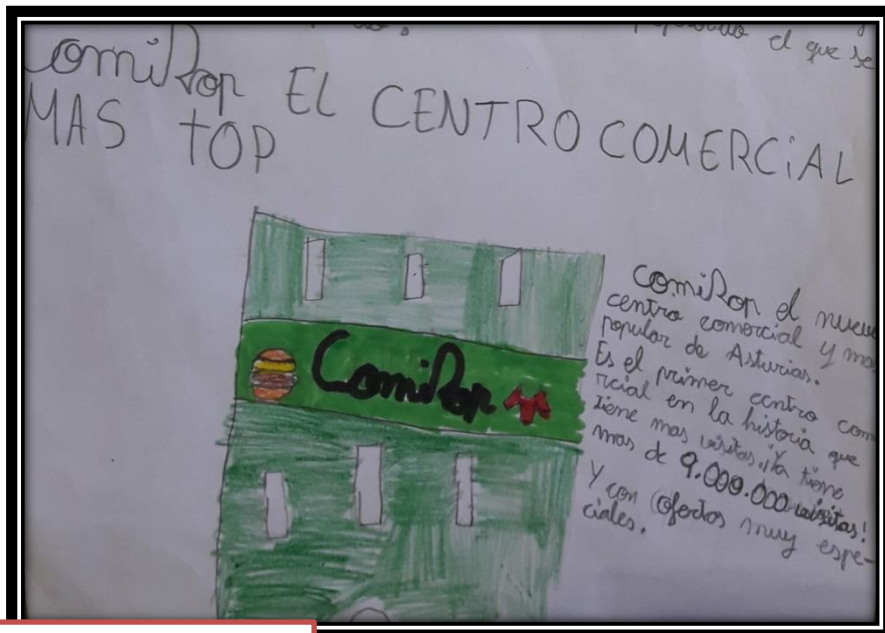 el que se
ComiRop EL CENTRO COMERCIAL
MAS tOP
ComiRop
ComiRop el nuevo
centro comercial y mas
popular de Asturias.
Es el primer centro com
rcial en la historia que
tiene mas visitas. ¡Ya tiene
mas de 9.000.000 visitas!
Y con Ofertas muy espe-
ciales.